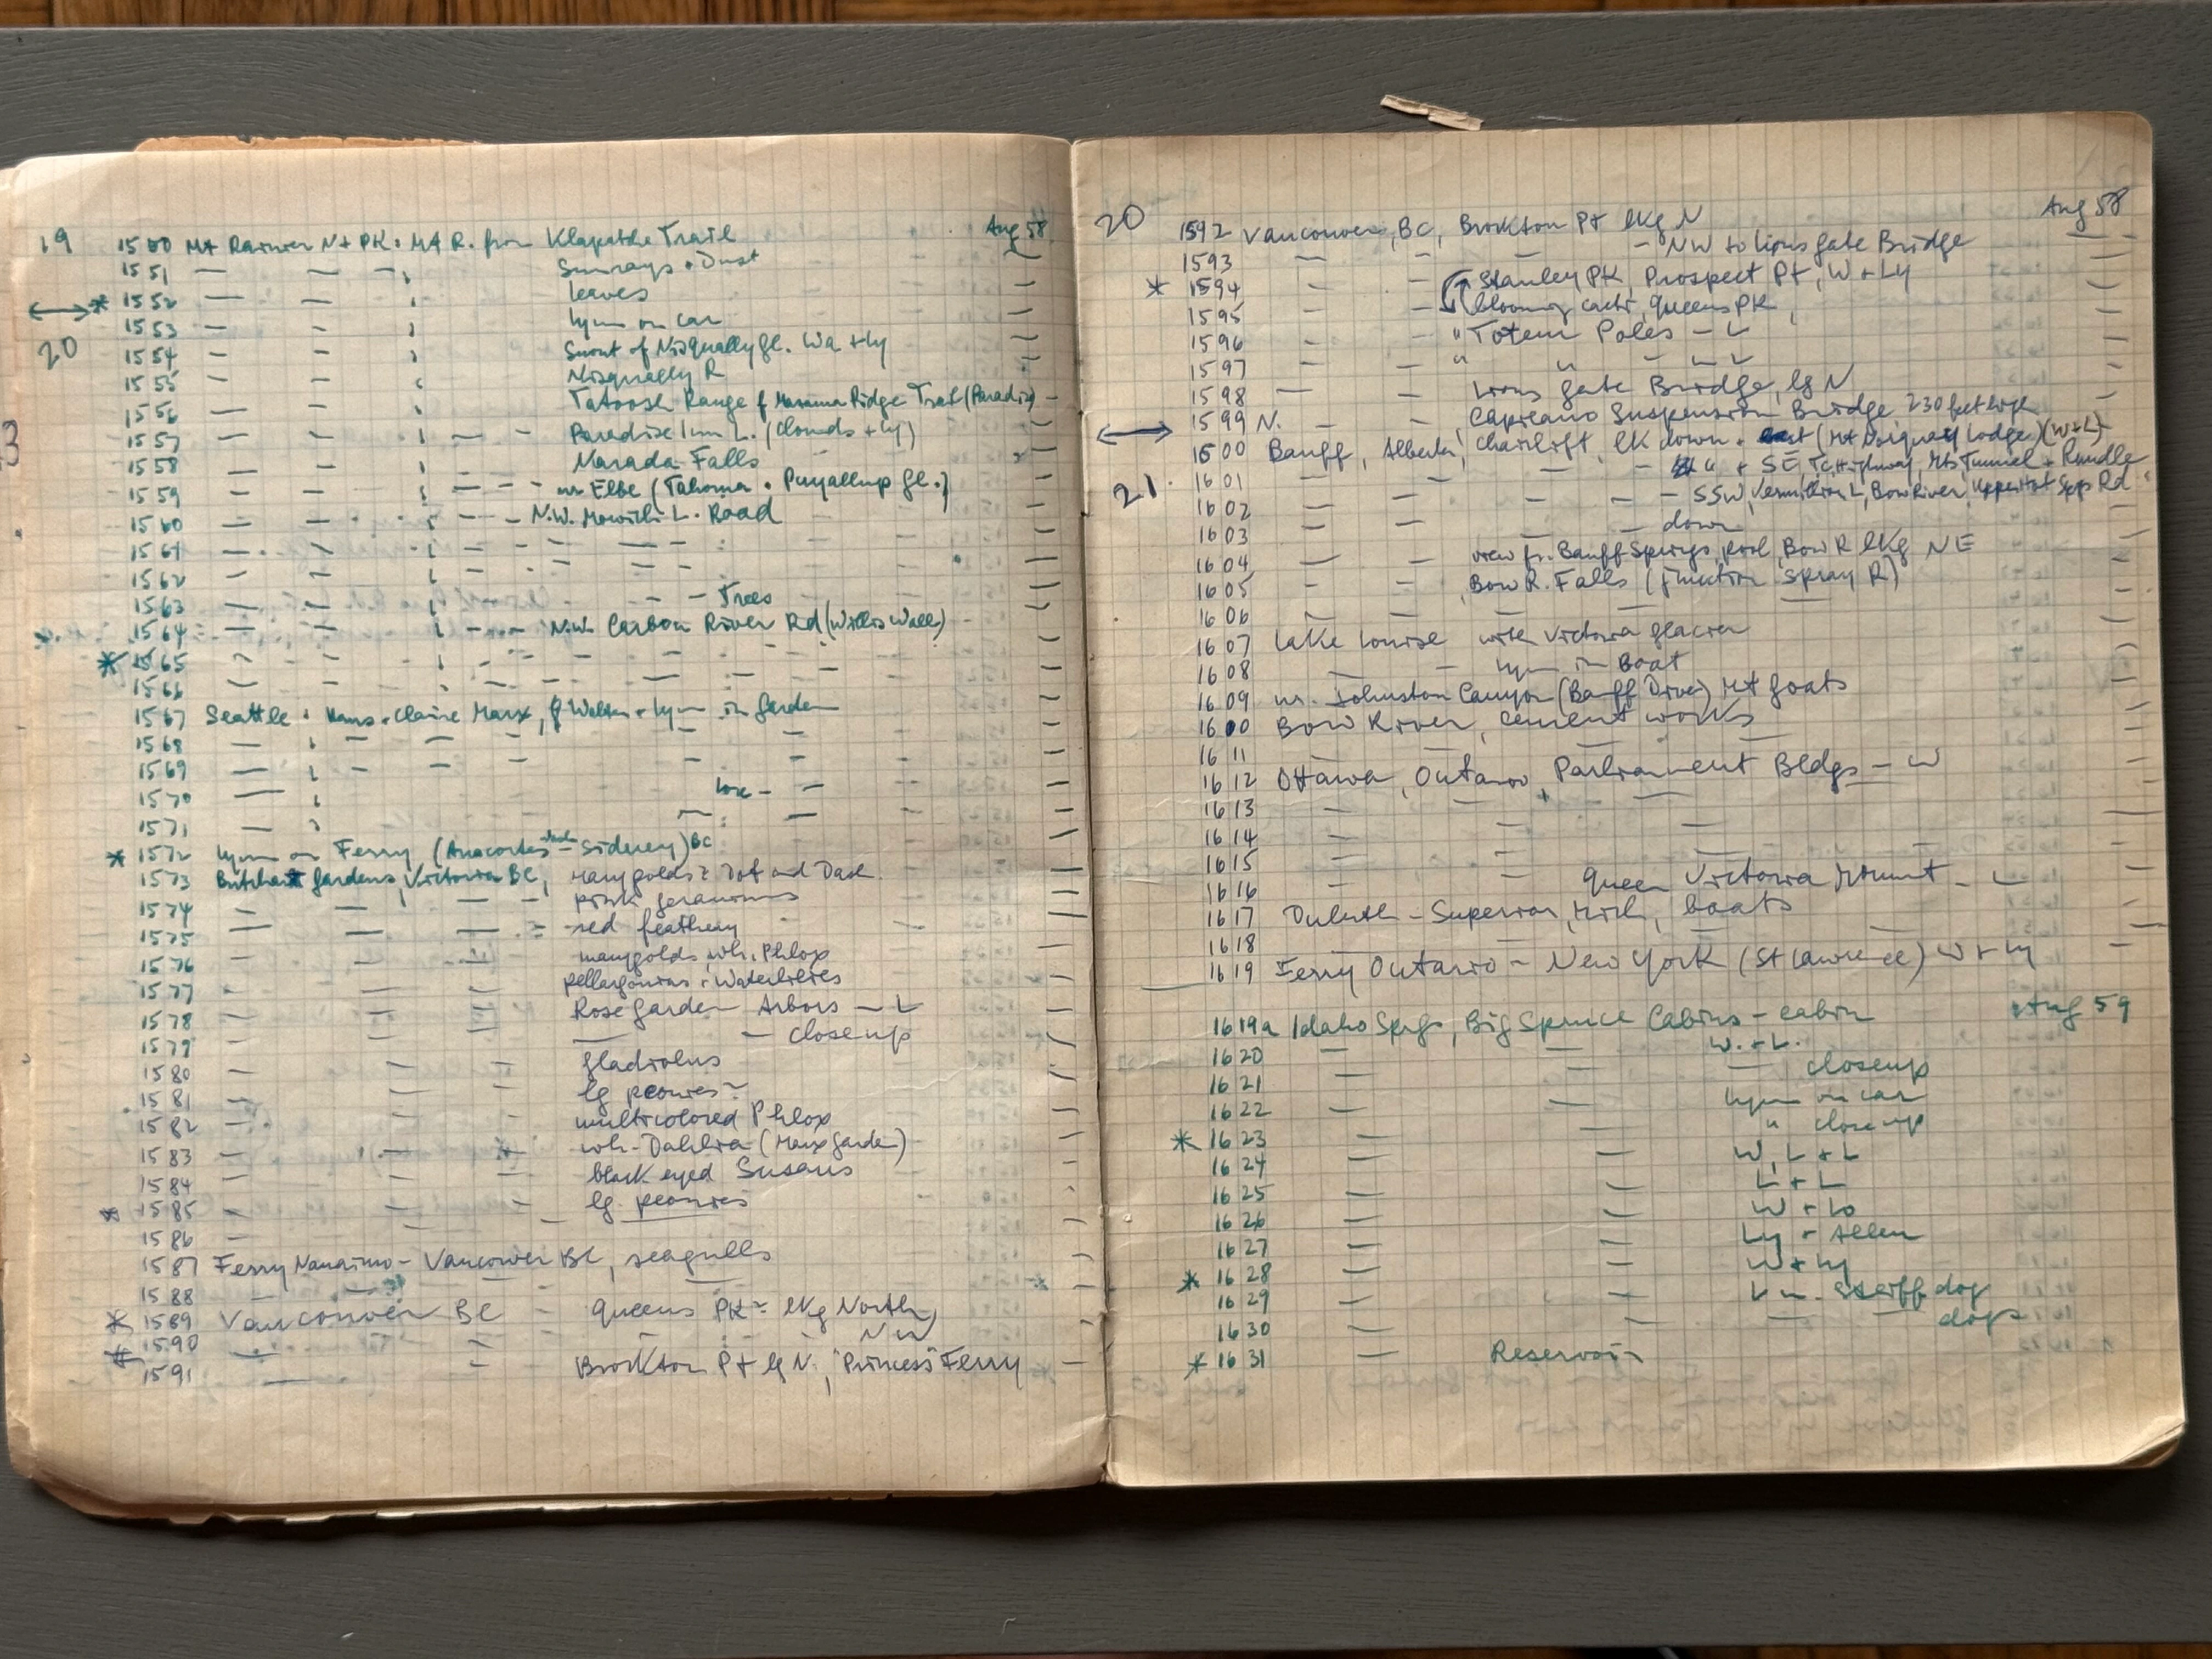 19 1550 Mt Rainier Nt PK: Mt R. from Klapatche Trail Aug 58
1551 — — — Sunrays + Dust
* 1552 — — leaves
1553 — — Lynn on car
20 1554 — — Snout of Nisqually gl. Wa + Ly
1555 — — Nisqually R
1556 — — Tatoosh Range f Mazama Ridge Trail (Paradise)
1557 — — — — Paradise Inn L. (Clouds + Ly)
1558 — — Narada Falls
1559 — — — — — nr Elbe (Tahoma + Puyallup gl.)
1560 — — — — N.W. Mowich L. Road
1561 — — — — — —
1562 — —
1563 — — — — Trees
1564 — — — — N.W. Carbon River Rd (Willis Wall)
* 1565 — — — — — — — —
1566 — — — — — — — —
1567 Seattle: Hans + Claire Marx, f Walter + Lynn in garden
1568 — — — — — —
1569 — — — — — —
1570 — —
1571 — — — —
* 1572 Lynn on Ferry (Anacortes - Sidney) BC
1573 Butchart gardens, Victoria BC, marygolds: Dot and Dash
1574 — — — — pink geraniums
1575 — — — red feathery
1576 — — — marygolds, wh. Phlox
1577 — — — pellargonias + Waterlilies
1578 — — — Rose garden Arbors — L
1579 — — — — — closeup
1580 — — — gladiolus
1581 — — — lg peonies
1582 — — — multicolored Phlox
1583 — — wh. Dahlia (Marx garden)
1584 — — — black eyed Susans
* 1585 — — — lg. peonies
1586 — — —
1587 Ferry Nanaimo - Vancouver BC, seagulls
1588 — — —
* 1589 Vancouver BC — Queens PK - lkg North
* 1590 — — NW
1591 — — Brockton Pt lg N, "Princess" Ferry
20 1592 Vancouver, BC, Brockton Pt lkg N Aug 58
1593 — — — NW to Lions gate Bridge
* 1594 — — Stanley PK, Prospect Pt, W + Ly
1595 — — blooming cacti, Queens PK,
1596 — — " Totem Poles — L
1597 — — " " — L L
1598 — — Lions gate Bridge, lg N
1599 N. — — Capilano Suspension Bridge 230 feet high
1500 Banff, Alberta, Chairlift, lk down + east (Mt Norquay Lodge) (W+L)
21. 1601 — — — — " + SE, Tc Highway, Mts Tunnel + Rundle
1602 — — — — — SSW, Vermillion L, Bow River, Upper Hot Spgs Rd
1603 — — — down
1604 — — view fr. Banff Springs pool, Bow R lkg NE
1605 — — Bow R. Falls (junction Spray R)
1606 — — — — —
1607 Lake Louise with Victoria glacier
1608 — — Lynn in Boat
1609 nr. Johnston Canyon (Banff Drive) Mt goats
1600 Bow River, cement works
1611 — — —
1612 Ottawa, Ontario, Parliament Bldgs — W
1613 — — —
1614 — — —
1615 — — —
1616 — — Queen Victoria Mount — L
1617 Duluth - Superior, Mich, boats
1618 — — —
1619 Ferry Ontario - New York (St Lawrence) W + Ly
1619a Idaho Spgs, Big Spruce Cabins - cabin Aug 59
1620 — — W. + L.
1621 — — — closeup
1622 — — Lynn on car
* 1623 — — " closeup
1624 — — W, L + L
1625 — — L + L
1626 — — W + Lo
1627 — — Ly + Allen
* 1628 — — W + Ly
1629 — — L w. Steiff dog
1630 — — — — dogs
* 1631 — Reservoir